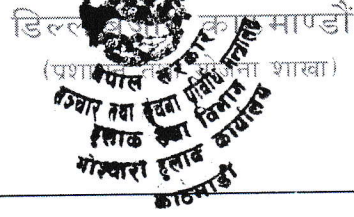 काठमाण्डौं
शाखा)
नेपाल सरकार
सञ्चार तथा सूचना प्रविधि मन्त्रालय
हुलाक सेवा विभाग
गोश्वारा हुलाक कार्यालय
काठमाडौं